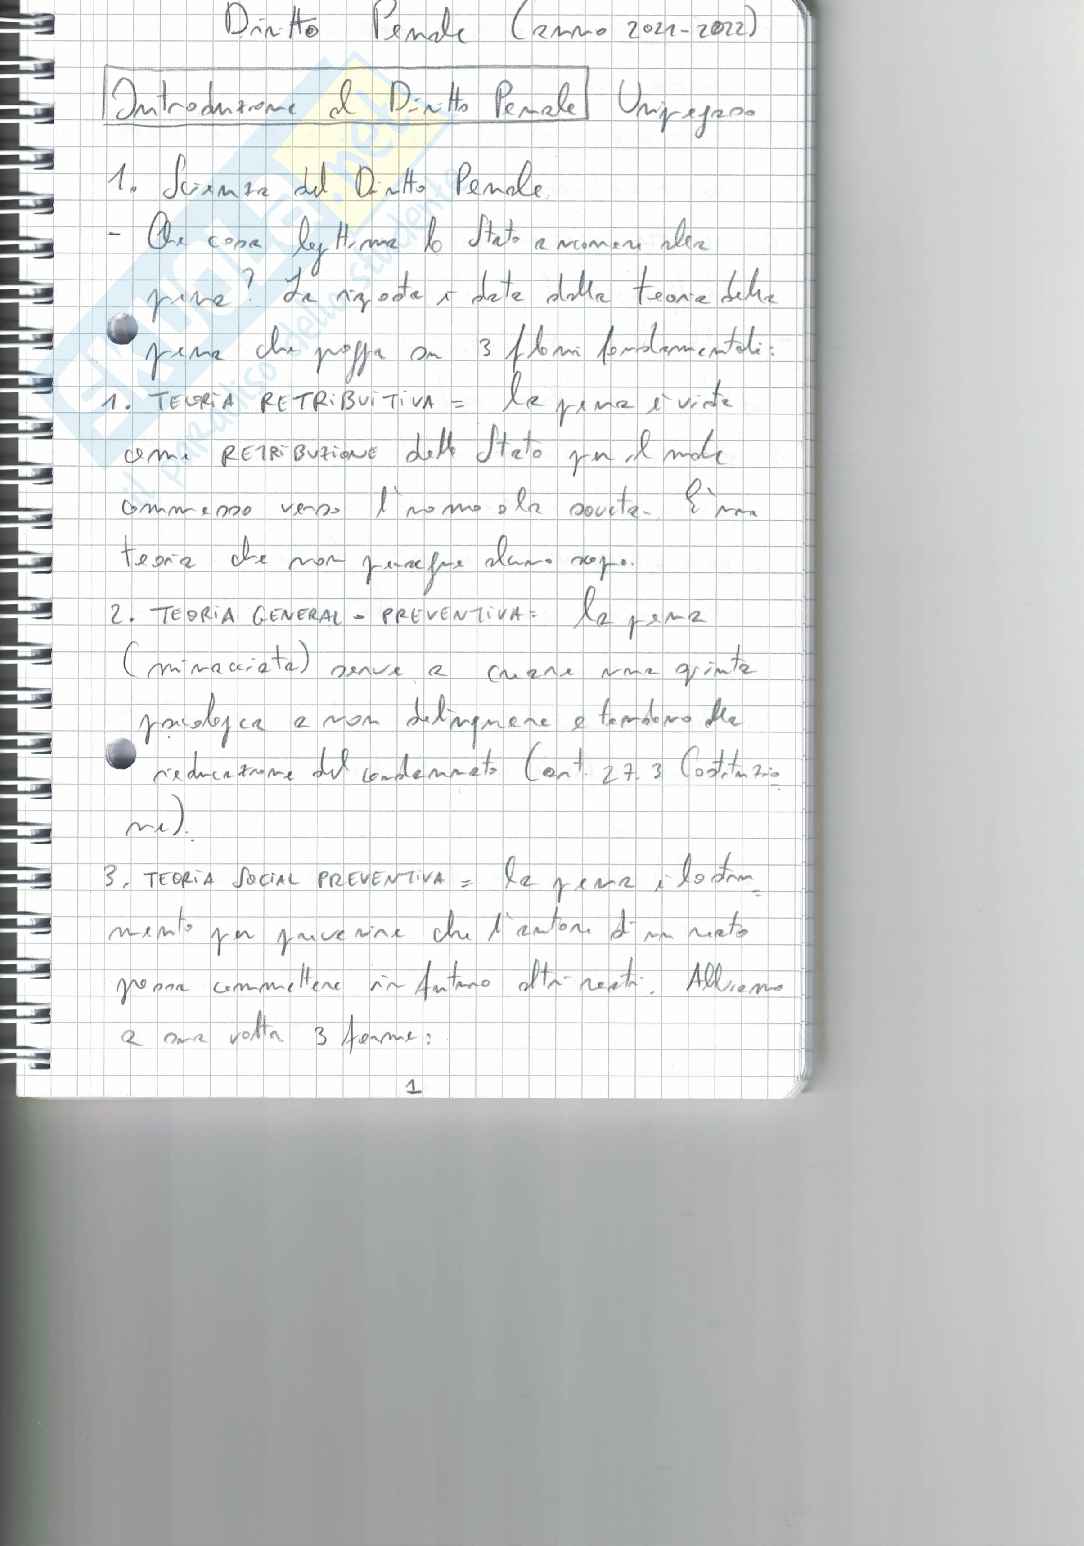 Diritto Penale (anno 2021-2022)
Introduzione al Diritto Penale
1. Scienza del Diritto Penale
- Che cosa legittima lo Stato a ricorrere alla
pena? La risposta è data dalla teoria della
pena che poggia su 3 filoni fondamentali:
1. TEORIA RETRIBUITIVA = la pena è vista
come RETRIBUZIONE dello Stato per il male
commesso verso l'uomo o la società. È una
teoria che non persegue alcuno scopo.
2. TEORIA GENERAL-PREVENTIVA = la pena
(minacciata) serve a creare una spinta
psicologica a non delinquere e tendono alla
rieducazione del condannato (art. 27.3 Costituzio
ne).
3. TEORIA SOCIAL PREVENTIVA = la pena è lo stru-
mento per prevenire che l'autore d'un reato
possa commettere in futuro altri reati. Abbiamo
a sua volta 3 forme:
1
SKUOLA.net
il paradiso dello studente